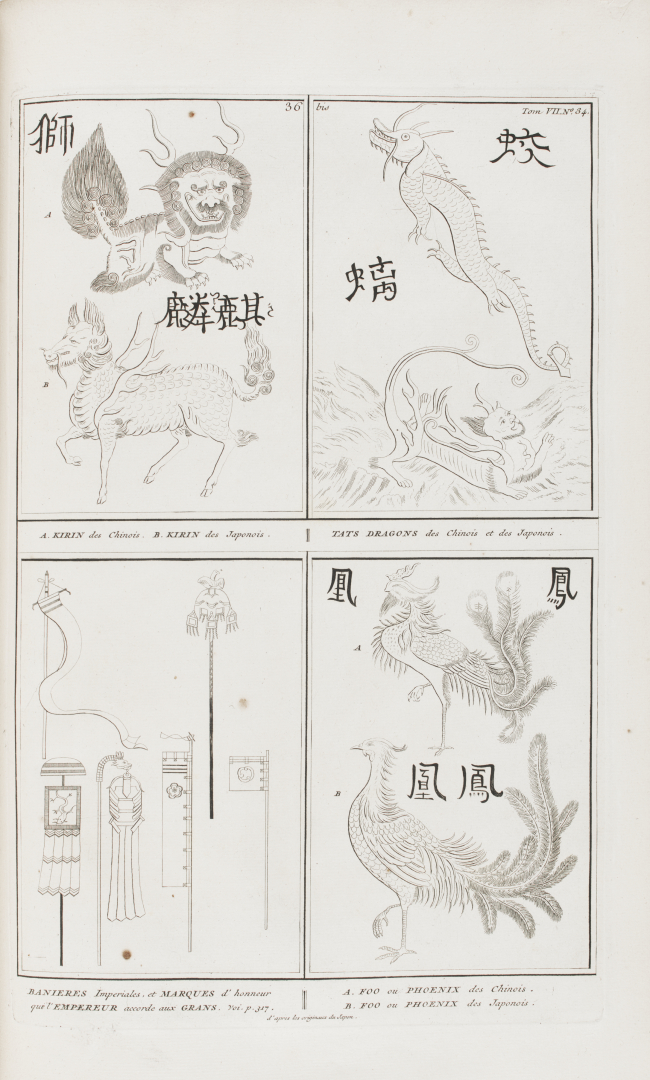 36
獅
A
麒麟
B
bis
Tom. VII. Nº. 84.
蛟
螭
A. KIRIN des Chinois. B. KIRIN des Japonois.
TATS DRAGONS des Chinois et des Japonois.
凰
鳳
A
B
凰鳳
BANIERES Imperiales, et MARQUES d'honneur
qui l'EMPEREUR accorde aux GRANS. Voi. p. 317.
A. FOO ou PHOENIX des Chinois.
B. FOO ou PHOENIX des Japonois.
d'après les originaux du Japon.